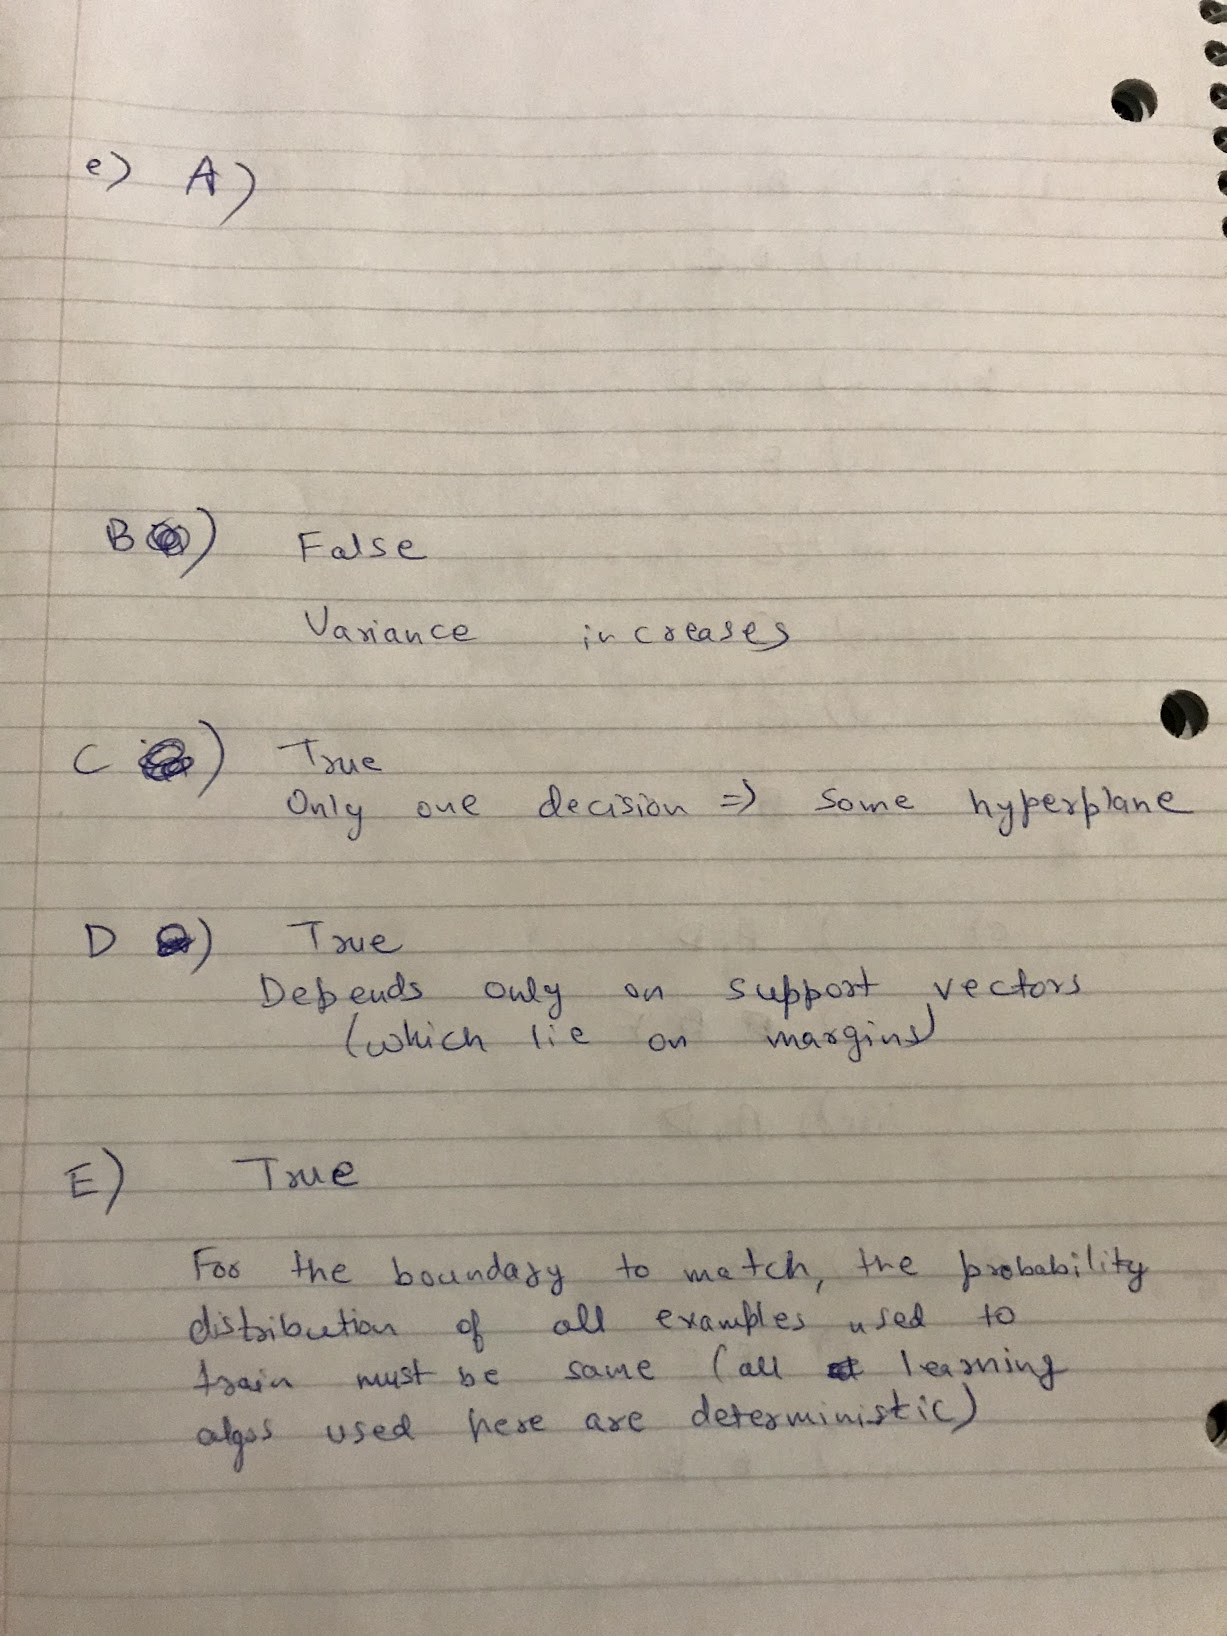 e) A)
B ) False
Variance increases
C ) True
Only one decision => Some hyperplane
D ) True
Depends only on support vectors
(which lie on margins)
E) True
For the boundary to match, the probability
distribution of all examples used to
train must be same (all learning
algos used here are deterministic)